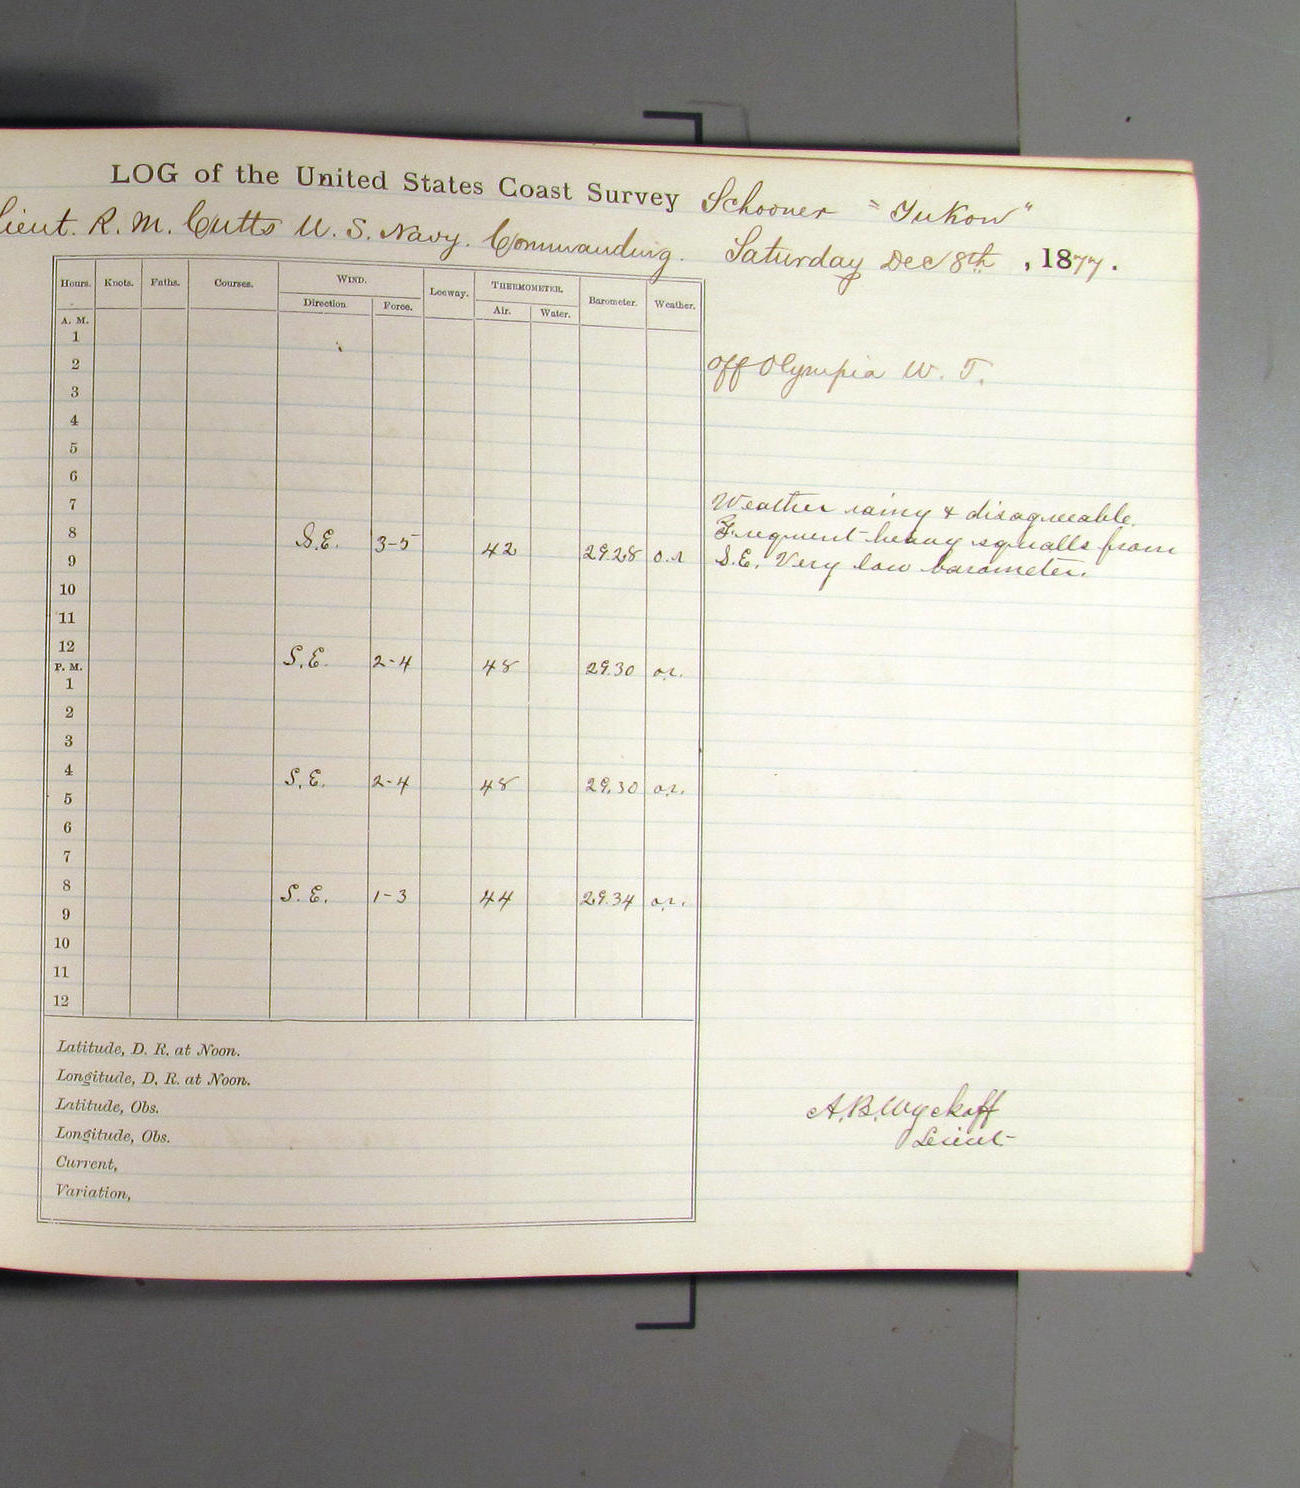 LOG of the United States Coast Survey Schooner "Yukon"
Lieut. R. M. Cutts U. S. Navy. Commanding. Saturday Dec 8th, 1877.
Hours. Knots. Faths. Courses. WIND. Leeway. THERMOMETER. Barometer. Weather.
Direction. Force. Air. Water.
A. M.
1
2 off Olympia W. T.
3
4
5
6
7 Weather rainy & disagreeable.
8 S.E. 3-5 42 29.28 o.r Frequent heavy squalls from
9 S.E. Very low barometer.
10
11
12 S.E. 2-4 48 29.30 o.r.
P. M.
1
2
3
4 S.E. 2-4 48 29.30 o.r.
5
6
7
8 S.E. 1-3 44 29.34 o.r.
9
10
11
12
Latitude, D. R. at Noon.
Longitude, D. R. at Noon.
Latitude, Obs. A.B. Wyckoff
Longitude, Obs. Lieut
Current,
Variation,